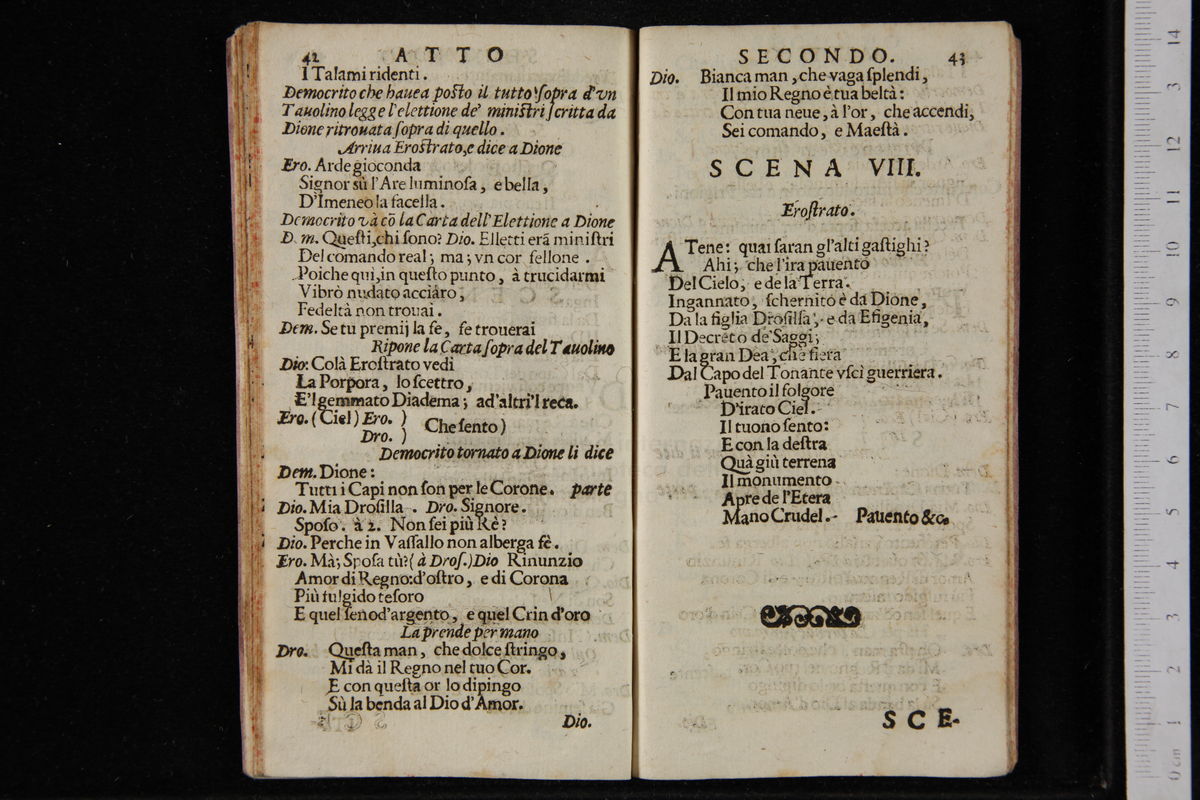 42 ATTO
I Talami ridenti.
Democrito che hauea posto il tutto sopra d'vn
Tauolino legge l'elettione de' ministri scritta da
Dione ritrouata sopra di quello.
Arriua Erostrato, e dice a Dione
Ero. Arde gioconda
Signor sù l'Are luminosa, e bella,
D'Imeneo la facella.
Democrito và cō la Carta dell'Elettione a Dione
D m. Questi, chi sono? Dio. Elletti erā ministri
Del comando real; ma; vn cor fellone.
Poiche qui, in questo punto, à trucidarmi
Vibrò nudato acciaro;
Fedeltà non trouai.
Dem. Se tu premij la fe, fe trouerai
Ripone la Carta sopra del Tauolino
Dio: Colà Erostrato vedi
La Porpora, lo scettro,
E'l gemmato Diadema; ad'altri'l reca.
Ero. (Ciel) Ero. ) Che sento)
Dro. )
Democrito tornato a Dione li dice
Dem. Dione:
Tutti i Capi non son per le Corone. parte
Dio. Mia Drosilla. Dro. Signore.
Sposo. à 2. Non sei più Rè?
Dio. Perche in Vassallo non alberga fè.
Ero. Mà; Sposa tù? (à Dros.) Dio Rinunzio
Amor di Regno: d'ostro, e di Corona
Più fulgido tesoro
E quel seno d'argento, e quel Crin d'oro
La prende per mano
Dro. Questa man, che dolce stringo,
Mi dà il Regno nel tuo Cor.
E con questa or lo dipingo
Sù la benda al Dio d'Amor.
Dio.
SECONDO. 43
Dio. Bianca man, che vaga splendi,
Il mio Regno è tua beltà:
Con tua neue, à l'or, che accendi,
Sei comando, e Maestà.
SCENA VIII.
Erostrato.
ATene: quai saran gl'alti gastighi?
Ahi; che l'ira pauento
Del Cielo, e de la Terra.
Ingannato, schernito è da Dione,
Da la figlia Drosilla, e da Efigenia,
Il Decreto de' Saggi;
E la gran Dea, che fiera
Dal Capo del Tonante vscì guerriera.
Pauento il folgore
D'irato Ciel.
Il tuono sento:
E con la destra
Quà giù terrena
Il monumento
Apre de l'Etera
Mano Crudel. Pauento &c.
SCE-